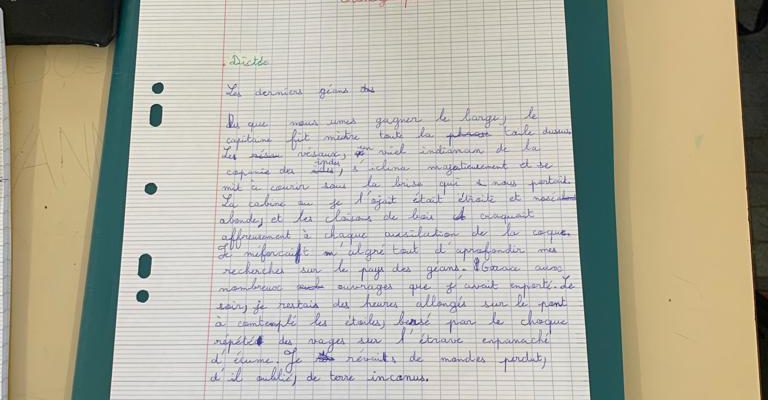 Dictée
Les derniers géans
Dès que nous umes gagner le large, le
capitane fit mètre toute la toile dusus.
Les résaux, un viel indianan de la
copanie des indes, s'iclina majatieusement et se
mit à courir sous la brise qui nous portait.
La cabine ou je l'ojait était étroite et
abonde, et les cloisons de bois craquait
affreusement à chaque ausilation de la coque.
Je meforcait m'algré tout d'aprofondir mes
recherches sur le pays des géans. aux
nombreux ouvrages que j'avait enporté. Le
soir, je restais des heures allongés sur le pont
à contemplé les étoiles, bersé par le choque
répété des vages sur l'étrave enpanaché
d'écume. Je révaits de mondes perdut,
d'il oublié, de terre inconus.